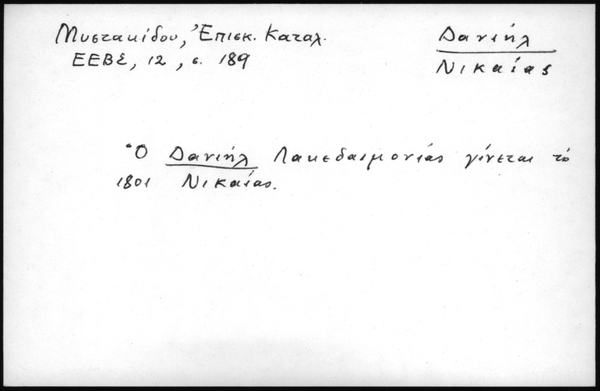 Μυστακίδου, Ἐπισκ. Καταλ.
ΕΕΒΣ, 12, σ. 189
Δανιήλ
Νικαίας
Ὁ Δανιήλ Λακεδαιμονίας γίνεται τό
1801 Νικαίας.